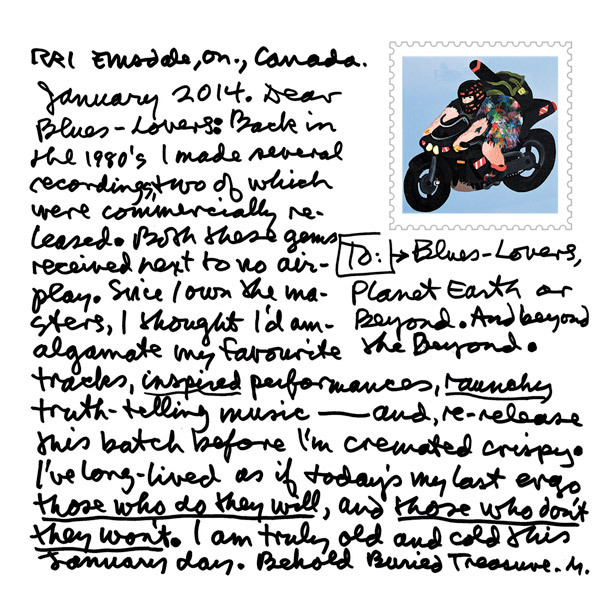 RR1 Emsdale, On., Canada.
January 2014. Dear
Blues-Lovers: Back in
the 1980's I made several
recordings, two of which
were commercially re-
leased. Both these gems
received next to no air-
play. Since I own the ma-
sters, I thought I'd am-
algamate my favourite
tracks, inspired performances, raunchy
truth-telling music — and, re-release
this batch before I'm cremated crispy.
I've long-lived as if today's my last ergo
those who do they will, and those who don't
they won't. I am truly old and cold this
January day. Behold Buried Treasure. M.
To: → Blues-Lovers,
Planet Earth or
Beyond. And beyond
the Beyond.